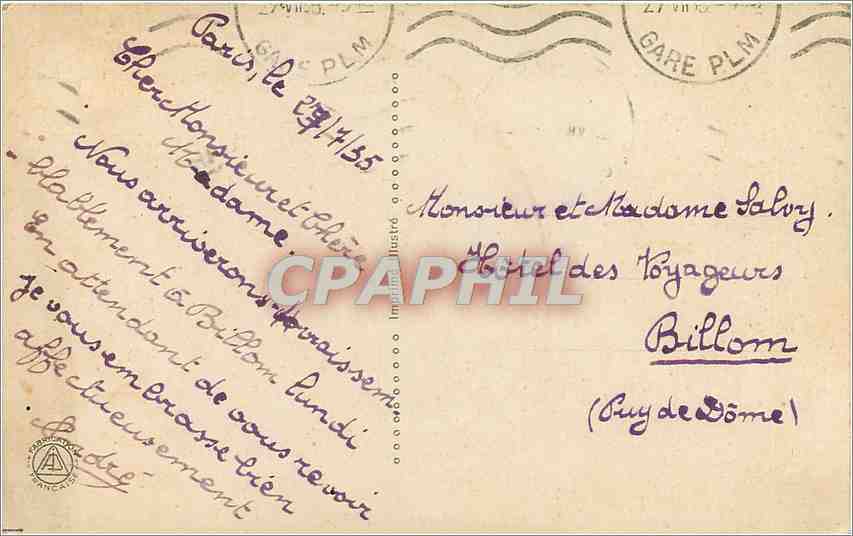 Paris, le 27/7/35
Cher Monsieur et Chère
Madame.
Nous arriverons vraissem-
blablement à Billom lundi
En attendant de vous revoir
je vous embrasse bien
affectueusement
André
Monsieur et Madame Salvy.
Hôtel des Voyageurs
Billom
(Puy de Dôme)
Imprimé Illustré
GARE PLM
27 VII 35
GARE PLM
FABRICATION
FRANÇAISE
CPAPHIL